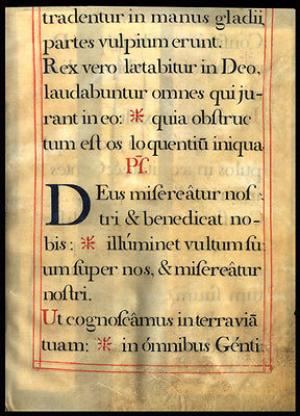 tradentur in manus gladii
partes vulpium erunt.
Rex vero lætabitur in Deo,
laudabuntur omnes qui ju-
rant in eo: * quia obstruc
tum est os loquentiū iniqua
Ps.
Deus misereâtur nos-
tri & benedicat no-
bis: * illúminet vultum su
um super nos, & misereâtur
nostri.
Ut cognoscâmus in terra viā
tuam: * in ómnibus Génti